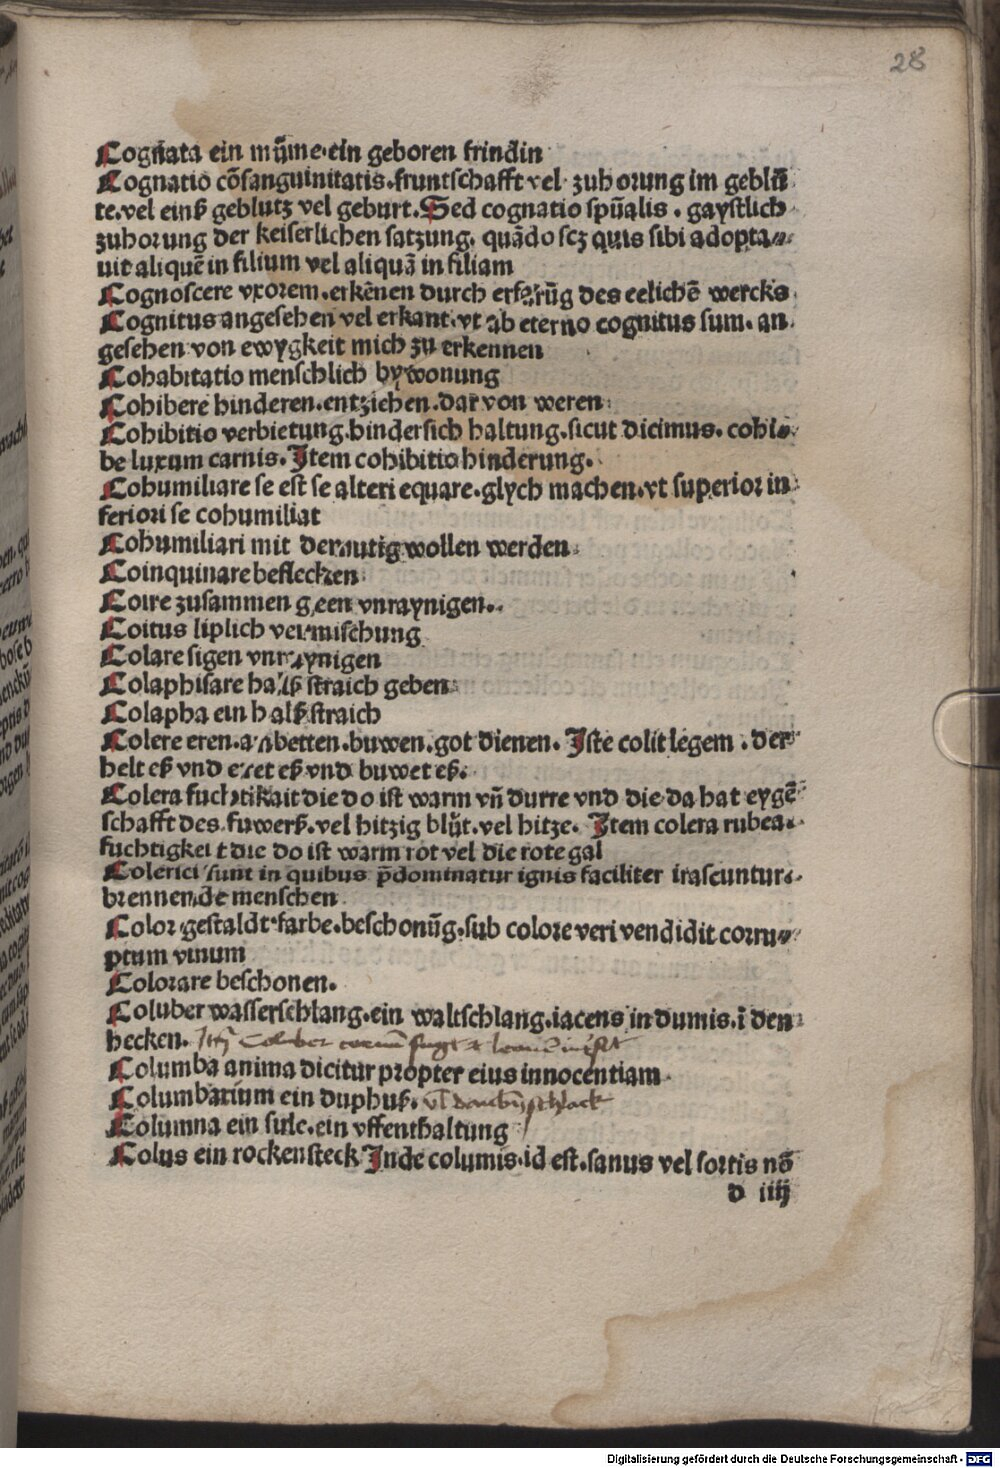 28
Cognata ein mu̅me·ein geboren frindin
Cognatio co̅sanguinitatis·fruntschafft vel zuhorung im geblu̅
te·vel einß geblutz vel geburt·Sed cognatio spu̅alis·gaystlich
zuhorung der keiserlichen satzung·qua̅do scz quis sibi adopta⸗
uit alique̅ in filium vel aliqua̅ in filiam
Cognoscere vxorem·erke̅nen durch erfaru̅g des eeliche̅ wercks
Cognitus angesehen vel erkant·vt ab eterno cognitus sum·an
gesehen von ewygkeit mich zu erkennen
Cohabitatio menschlich bywonung
Cohibere hinderen·entziehen·dar von weren
Cohibitio verbietung·hindersich haltung·sicut dicimus·cohi⸗
be luxum carnis·Item cohibitio hinderung·
Cohumiliare se est se alteri equare·glych machen·vt superior in
feriori se cohumiliat
Cohumiliari mit demutig wollen werden
Coinquinare beflecken
Coire zusammen geen vnraynigen·
Coitus liplich vermischung
Colare sigen vnraynigen
Colaphisare halß straich geben
Colapha ein halß straich
Colere eren·anbetten·buwen·got dienen·Iste colit legem·der
helt eß vnd eret eß vnd buwet eß·
Colera fuchtikait die do ist warm vn̅ durre vnd die da hat eyge̅
schafft des fuwerß·vel hitzig blůt·vel hitze·Item colera rubea·
fuchtigkeit die do ist warm rot vel die rote gal
Colerici sunt in quibus p̅dominatur ignis faciliter irascuntur·
brennende menschen
Color·gestaldt·farbe·beschonu̅g·sub colore veri vendidit corru⸗
ptum vinum
Colorare beschonen·
Coluber wasserschlang·ein waltschlang·iacens in dumis·i̅ den
hecken· Coluber
Columba anima dicitur propter eius innocentiam
Columbarium ein duphuß· vl
Columna ein sule·ein vffenthaltung
Colus ein rockensteck Inde columis·id est·sanus vel fortis no̅
d iiij
Digitalisierung gefördert durch die Deutsche Forschungsgemeinschaft - DFG